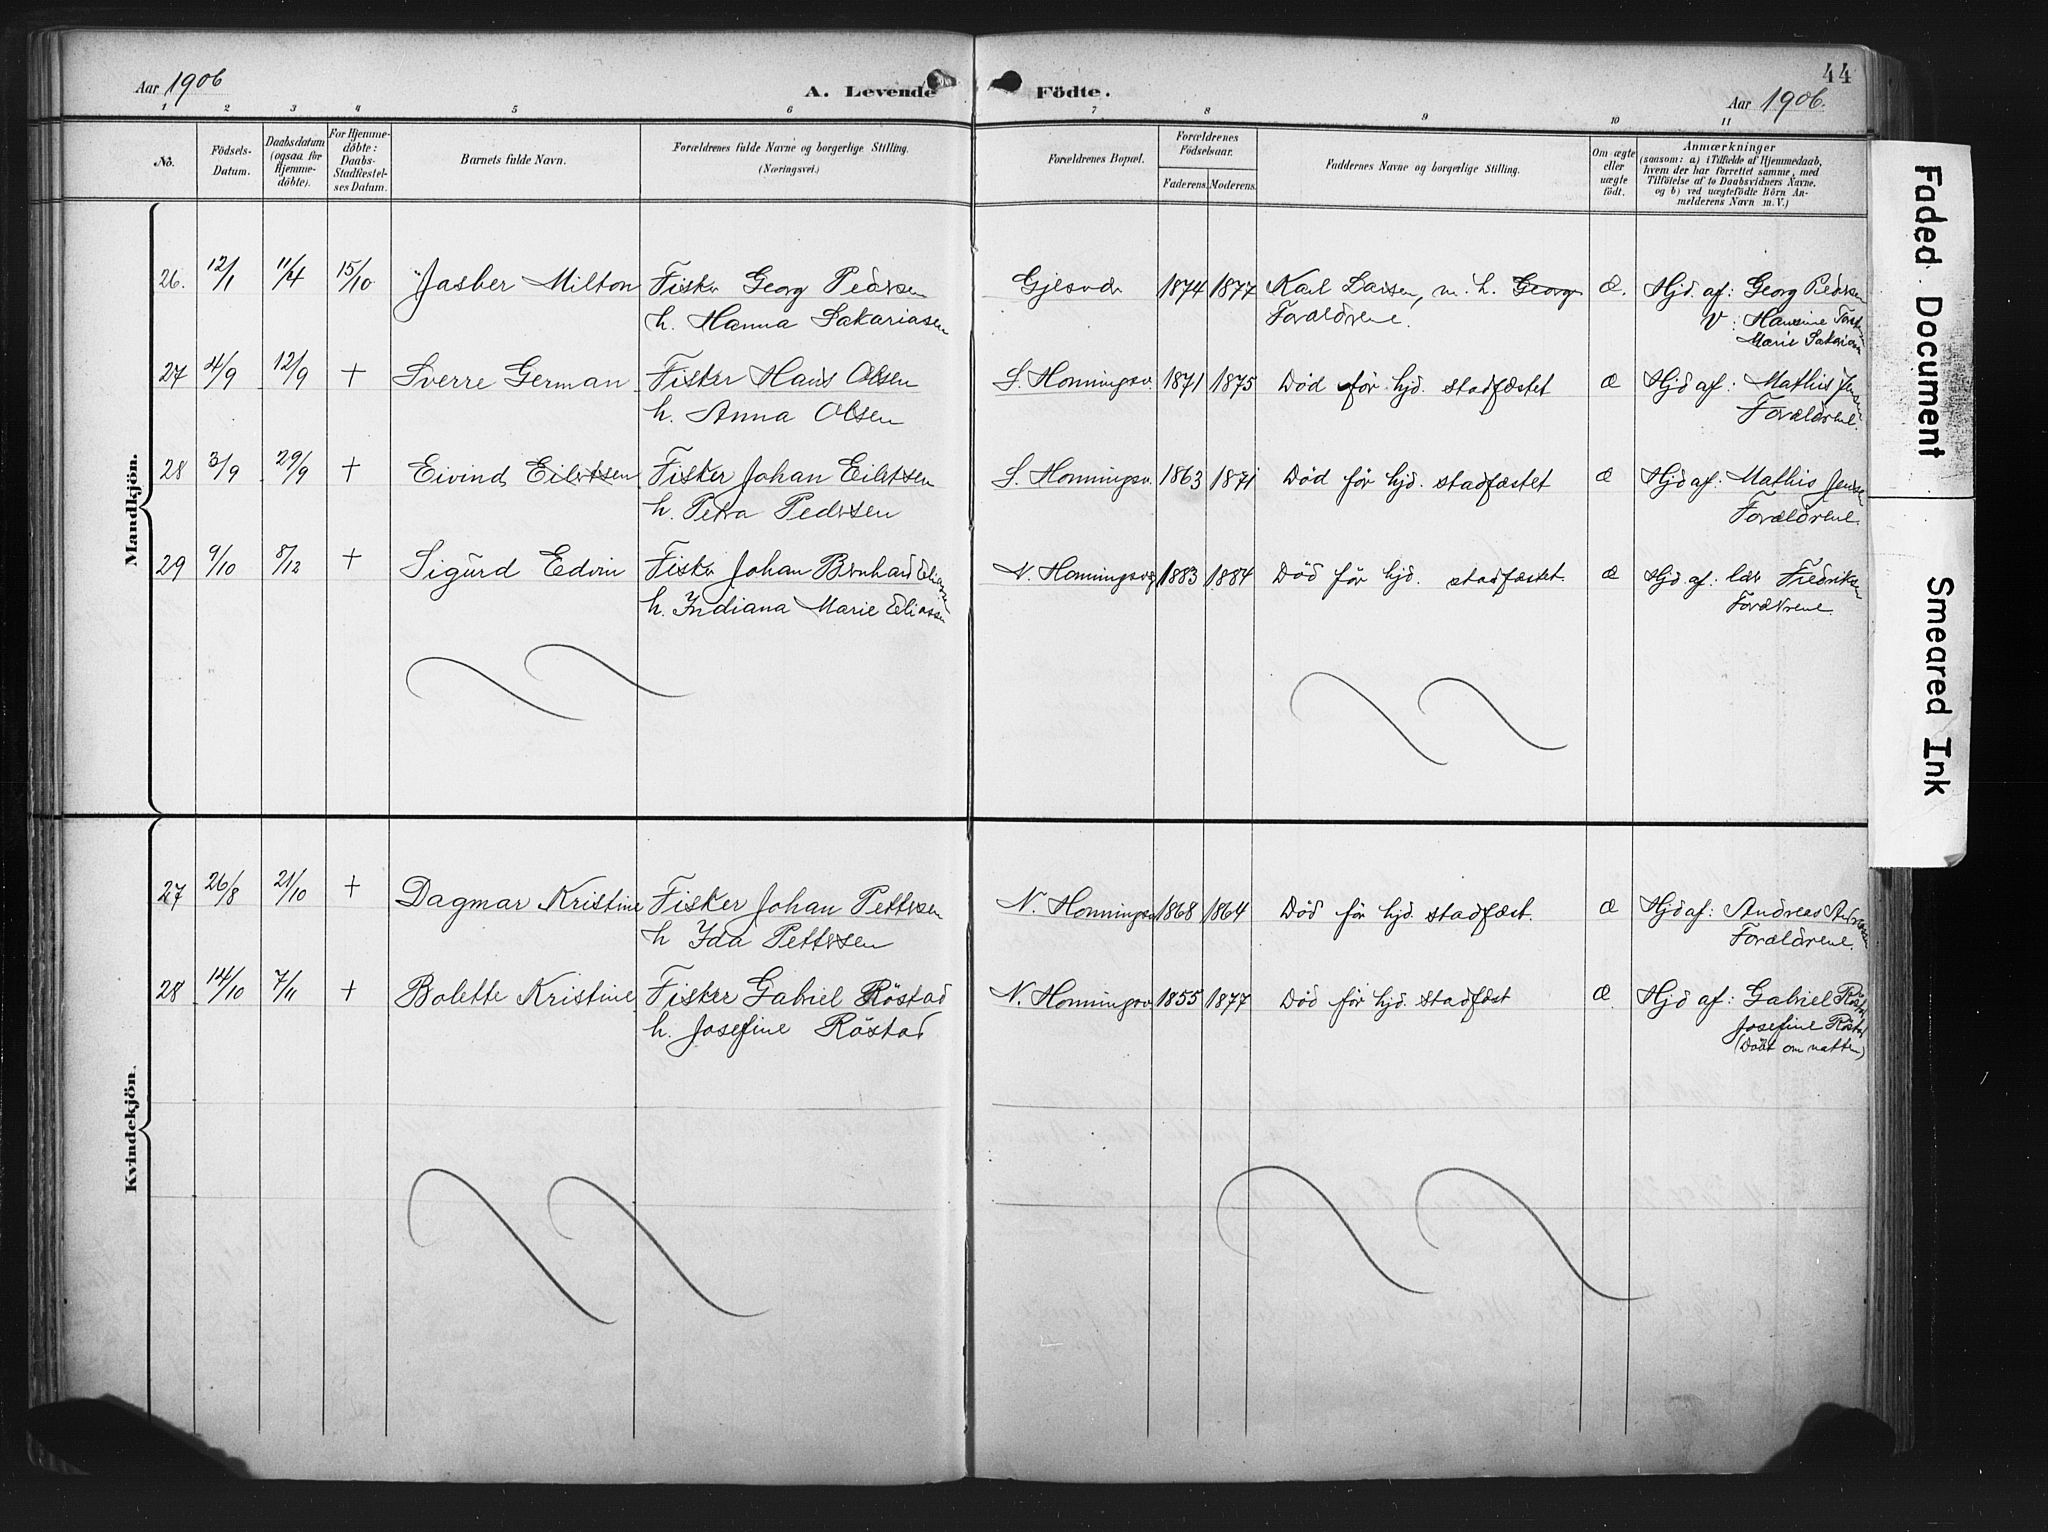 44
Aar 1906
A. Levende Födte.
Aar 1906.
1 2 3 4 5 6 7 8 9 10 11
No.
Födsels-Datum.
Daabsdatum (ogsaa for Hjemme-døbte).
For Hjemme-døbte: Daabs-Stadfæstel-ses Datum.
Barnets fulde Navn.
Forældrenes fulde Navne og borgerlige Stilling. (Næringsvei.)
Forældrenes Bopæl.
Forældrenes Födselsaar.
Faderens. Moderens.
Faddernes Navne og borgerlige Stilling.
Om ægte eller uægte födt.
Anmærkninger
(saasom: a) i Tilfælde af Hjemmedaab,
hvem der har forrettet samme, med
Tilföielse af to Daabsvidners Navne.
og b) ved uægtefödte Börn An-
melderens Navn m. V.)
Mandkjön.
26. 12/1 11/4 15/10 Jasber Milton Fisker Georg Pedersen Gjesvær 1874 1877 Karl Larsen, m. h. Georg æ. Hjd. af: Georg Pedersen
h. Hanna Sakariasen Forældrene. V: Hansine
Marie
27 4/9 12/9 + Sverre German Fisker Hans Olsen S. Honningsv. 1871 1875 Død før hjd. stadfæstet æ Hjd af: Mathis Jensen
h. Anna Olsen Forældrene.
28 3/9 29/9 + Eivind Eilertsen Fisker Johan Eilertsen S. Honningsv. 1863 1871 Død før hjd. stadfæstet æ Hjd af: Mathis Jensen
h. Petra Pedersen Forældrene.
29 9/10 8/12 + Sigurd Edvin Fisker Johan Bernhard Eliassen N. Honningsvåg 1883 1884 Død før hjd. stadfæstet. æ Hjd af: lær Fredriksen
h. Indiana Marie Eliassen Forældrene.
Kvindekjön.
27 26/8 21/10 + Dagmar Kristine Fisker Johan Pettersen N. Honningsv 1868 1864 Død før hjd. stadfæst. æ Hjd af: Andreas Andreassen
h Ida Pettersen Forældrene.
28 14/10 7/11 + Bolette Kristine Fisker Gabriel Röstad N. Honningsv. 1855 1877 Død før hjd. stadfæst æ. Hjd af: Gabriel Röstad
h. Josefine Röstad Josefine Röstad
(Døbt om natten)
Faded Document
Smeared Ink